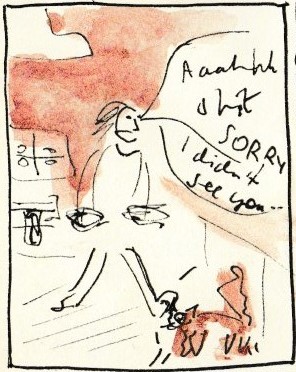 Aaahhh
shit
SORRY
I didn't
see you--